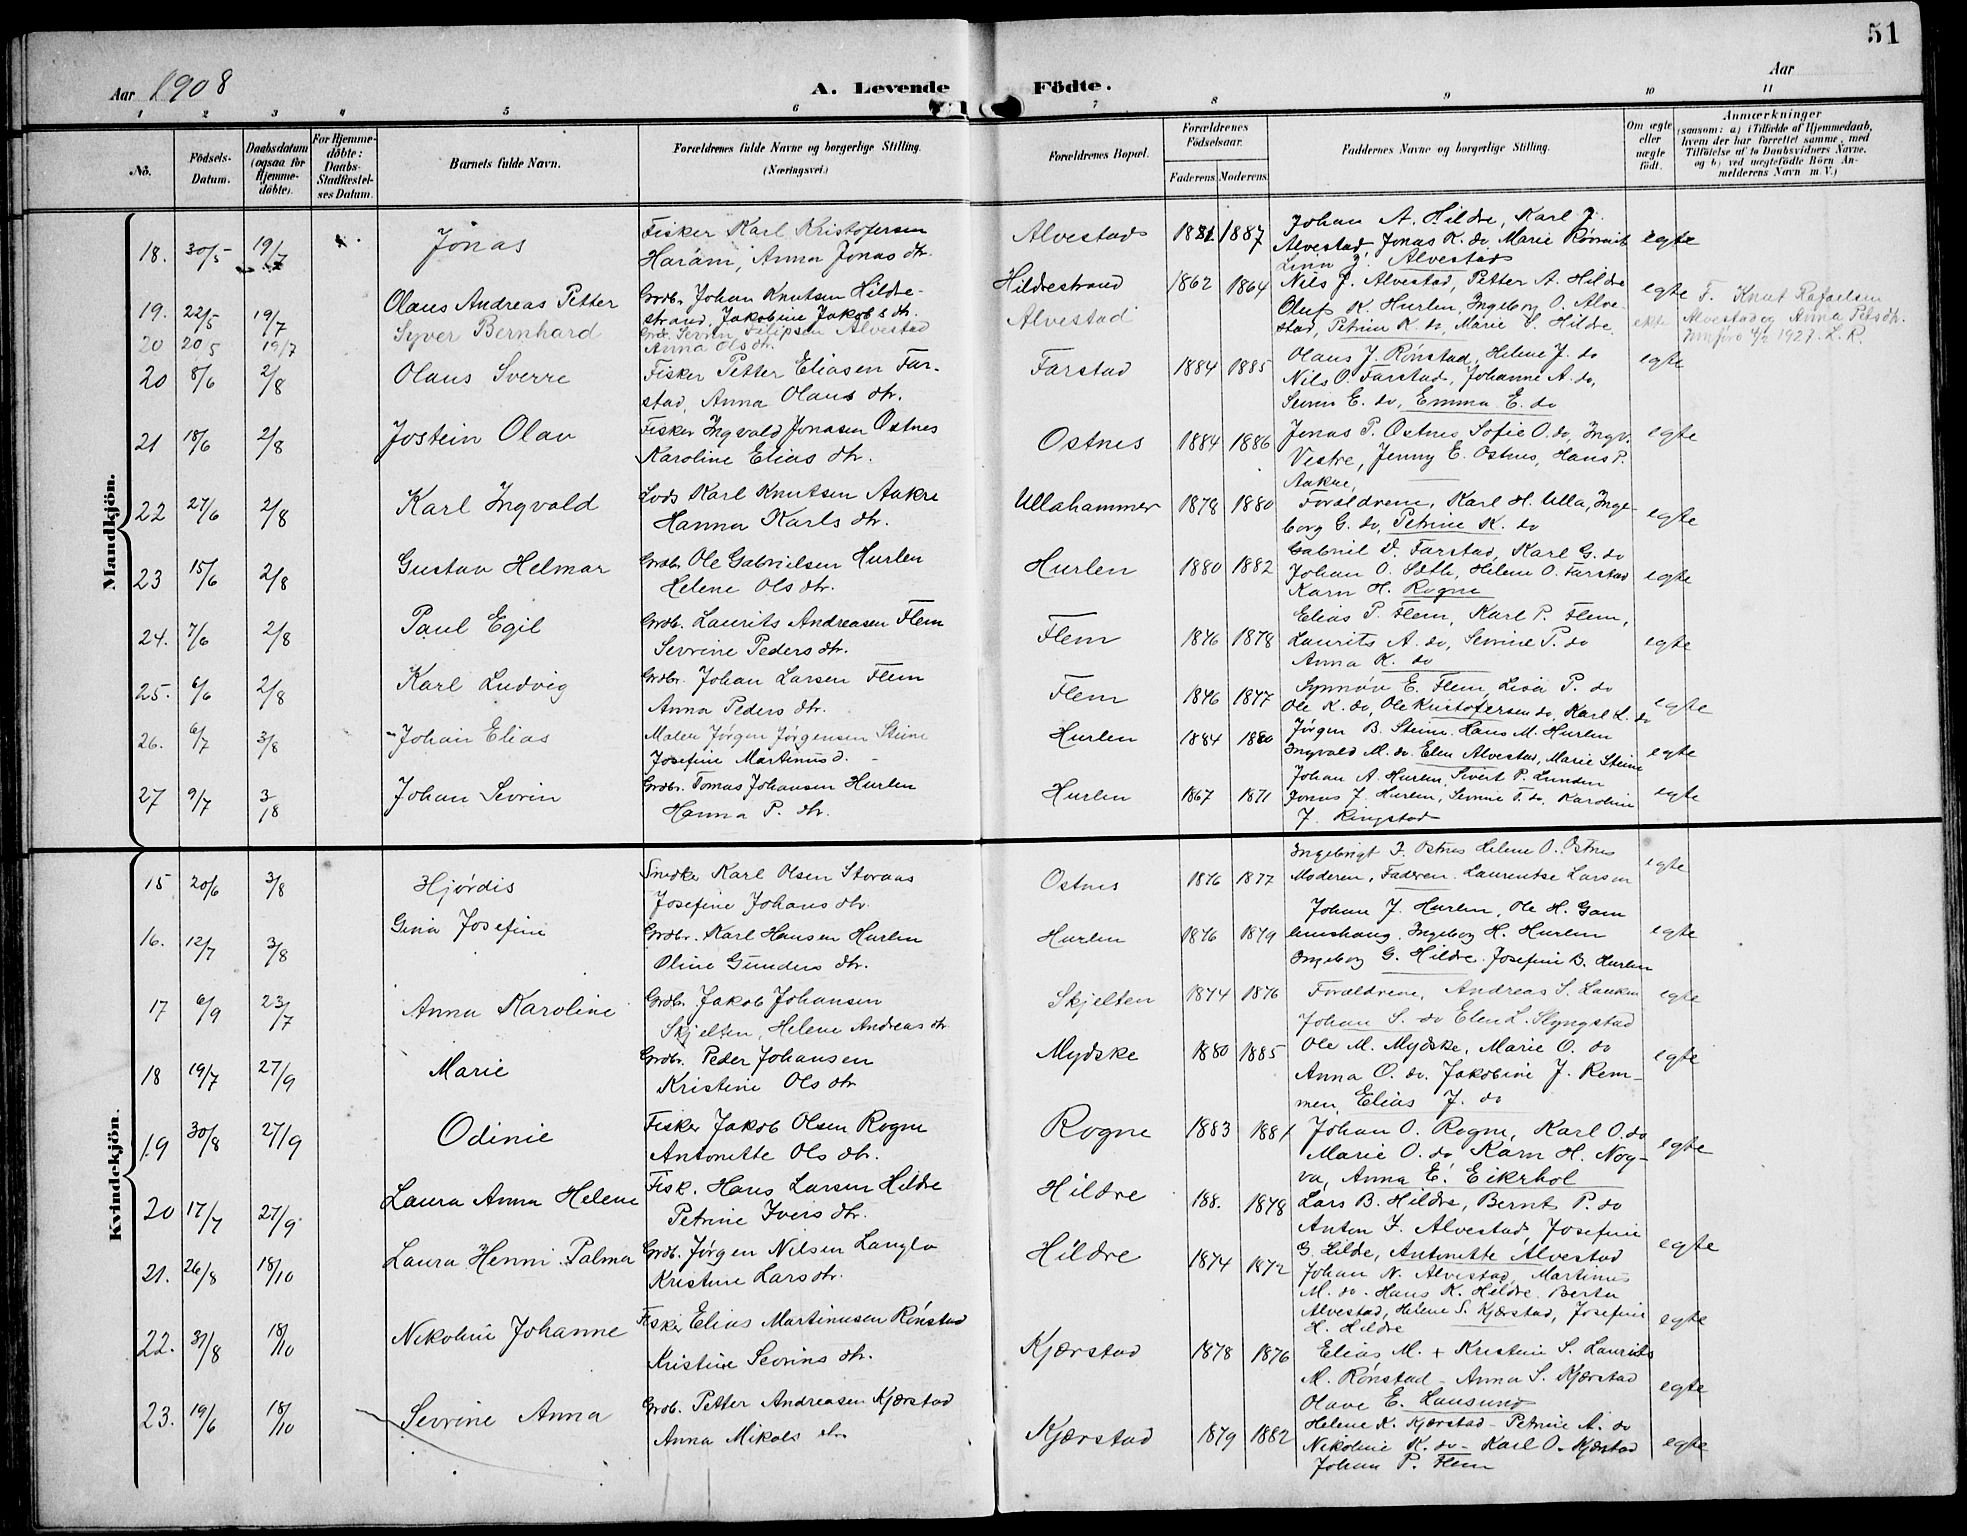 51
Aar 1908
A. Levende Födte.
Aar
1 2 3 4 5 6 7 8 9 10 11
No.
Födsels-Datum.
Daabsdatum (ogsaa for Hjemmedöbte).
For Hjemmedöbte: Daabs-Stadfæstelses Datum.
Barnets fulde Navn.
Forældrenes fulde Navne og borgerlige Stilling. (Næringsvei.)
Forældrenes Bopæl.
Forældrenes Födselsaar.
Faderens. Moderens.
Faddernes Navne og borgerlig Stilling.
Om ægte eller uægte födt.
Anmærkninger
(saasom: a) i Tilfælde af Hjemmedaab, hvem der har forrettet samme, med Tilföielse af to Daabsvidners Navne, og b) ved uægtefödte Börn Anmelderens Navn m. V.)
Mandkjön.
18. 30/5 19/7 Jonas Fisker Karl Kristofersen Alvestad 1881 1887 Johan A. Hildre, Karl J. egte
Haram, Anna Jonas dtr. Alvestad Jonas K. do, Marie Rønsvik
Alvestad
19. 22/5 19/7 Olaus Andreas Petter Grdbr. Johan Knutsen Hildre- Hildrestrand 1862 1864 Nils J. Alvestad, Petter A. Hildre egte
strand, Jakobine Jakobs dtr. Oluf K. Hurlen, Ingeborg O. Alve-
stad, Petrine K. do, Marie S. Hildre
20 20/5 19/7 Syver Bernhard Grdb. Sevrin Filipsen Alvestad Alvestad ekte F. Knut Rafaelsen
Anna Ols dtr. Alvestad og Anna Petsdtr.
1927. L.R.
20 8/6 2/8 Olaus Sverre Fisker Petter Eliasen Far- Farstad 1884 1885 Olaus J. Rønstad, Helene J. do egte
stad, Anna Olaus dtr. Nils O. Farstad, Johanne A. do,
Sevrin E. do, Emma E. do
21 18/6 2/8 Jostein Olav Fisker Ingvald Jonasen Ostnes Ostnes 1884 1886 Jonas P. Ostnes Sofie O. do, Ingv. egte
Karoline Elias dtr. Vestre, Jenny E. Ostnes, Hans P.
Aakre,
22 27/6 2/8 Karl Ingvald Lods Karl Knutsen Aakre Ullahammer 1878 1880 Forældrene, Karl H. Ulla, Inge- egte
Hanna Karls dtr. borg G. do, Petrine K. do
23 15/6 2/8 Gustav Helmar Grdbr. Ole Gabrielsen Hurlen Hurlen 1880 1882 Gabriel V. Farstad, Karl G. do egte
Helene Ols dtr. Johan O. Sætle, Helene O. Farstad
Karn H. Rogne
24. 7/6 2/8 Paul Egil Grdb. Laurits Andreasen Flem Flem 1876 1878 Elias P. Flem, Karl P. Flem, egte
Sevrine Peders dtr. Laurits A. do, Sevrine P. do
Anna K. do
25. 6/6 2/8 Karl Ludvig Grdbr. Johan Larsen Flem Flem 1876 1877 Synnøv E. Flem, Lisa P. do egte
Anna Peders dtr. Ole K. do, Ole Kristofersen do, Karl L. do
26. 6/7 3/8 Johan Elias Maler Jørgen Jørgensen Steine Hurlen 1884 1880 Jørgen B. Steine Hans M. Hurlen egte
Josefine Martinus d. Ingvald M. do. Elen Alvestad, Marie Steine
27 9/7 3/8 Johan Sevrin Grdbr. Tomas Johansen Hurlen Hurlen 1867 1871 Johan A. Hurlen, Sivert P. Lunden egte
Hanna P. dtr. Jonas J. Hurlen, Sevrine T. do, Karoline
J. Ringstad
Kvindekjön.
15 20/6 3/8 Hjørdis Smeder Karl Olsen Storaas Ostnes 1876 1877 Ingebrigt J. Ostnes Helene O. Ostnes egte
Josefine Johans dtr. Moderen, Faderen. Laurentse Larsen
16. 12/7 3/8 Gina Josefine Grdbr. Karl Hansen Hurlen Hurlen 1876 1879 Johan J. Hurlen, Ole H. Gam egte
Oline Gunders dtr. lemshaug, Ingeborg H. Hurlen
Ingeborg G. Hildre. Josefine B. Hurlen
17 6/9 23/7 Anna Karoline Grdbr. Jakob Johansen Skjelten 1874 1876 Forældrene, Andreas S. Lauken egte
Skjelten, Helene Andreas dtr Johan S. do Elen L. Slyngstad
18 19/7 27/9 Marie Grdbr. Peder Johansen Mydske 1880 1885 Ole M. Mydske, Marie O. do egte
Kristine Ols dtr Anna O. do, Jakobine J. Rem-
men, Elias J. do
19 30/8 27/9 Odinie Fisker Jakob Olsen Rogne Rogne 1883 1881 Johan O. Rogne, Karl O. do egte
Antonette Ols dtr. Marie O. do Karn H. Nog-
va, Anna E. Eikrhol
20 17/7 27/9. Laura Anna Helene Fisk. Hans Larsen Hildre Hildre 188. 1878 Lars B. Hildre, Bernt P. do egte
Petrine Ivers dtr. Anton J. Alvestad, Josefine
G. Hilde, Antonette Alvestad
21. 26/8 18/10 Laura Henni Palma Grdb. Jørgen Nilsen Langlo Hildre 1874 1872 Johan N. Alvestad, Martinus egte
Kristine Larsdtr. M. do. Hans K. Hildre. Berta
Alvestad, Helene S. Kjærstad, Josefine
H. Hildre
22. 31/8 18/10 Nikoline Johanne Fisker Elias Martinusen Rønstad Kjærstad 1878 1876 Elias M. + Kristine S. Laurits egte
Kristine Sevrins dtr. M. Rønstad - Anna S. Kjærstad
Olave E. Lausund
23. 19/6 18/10 Sevrine Anna Grdb. Petter Andreasen Kjærstad Kjærstad 1879 1882 Helene K. Kjærstad - Petrine A. do egte
Anna Mikals dtr Nikoline K. do - Karl O. Kjærstad
Johan P. Flem